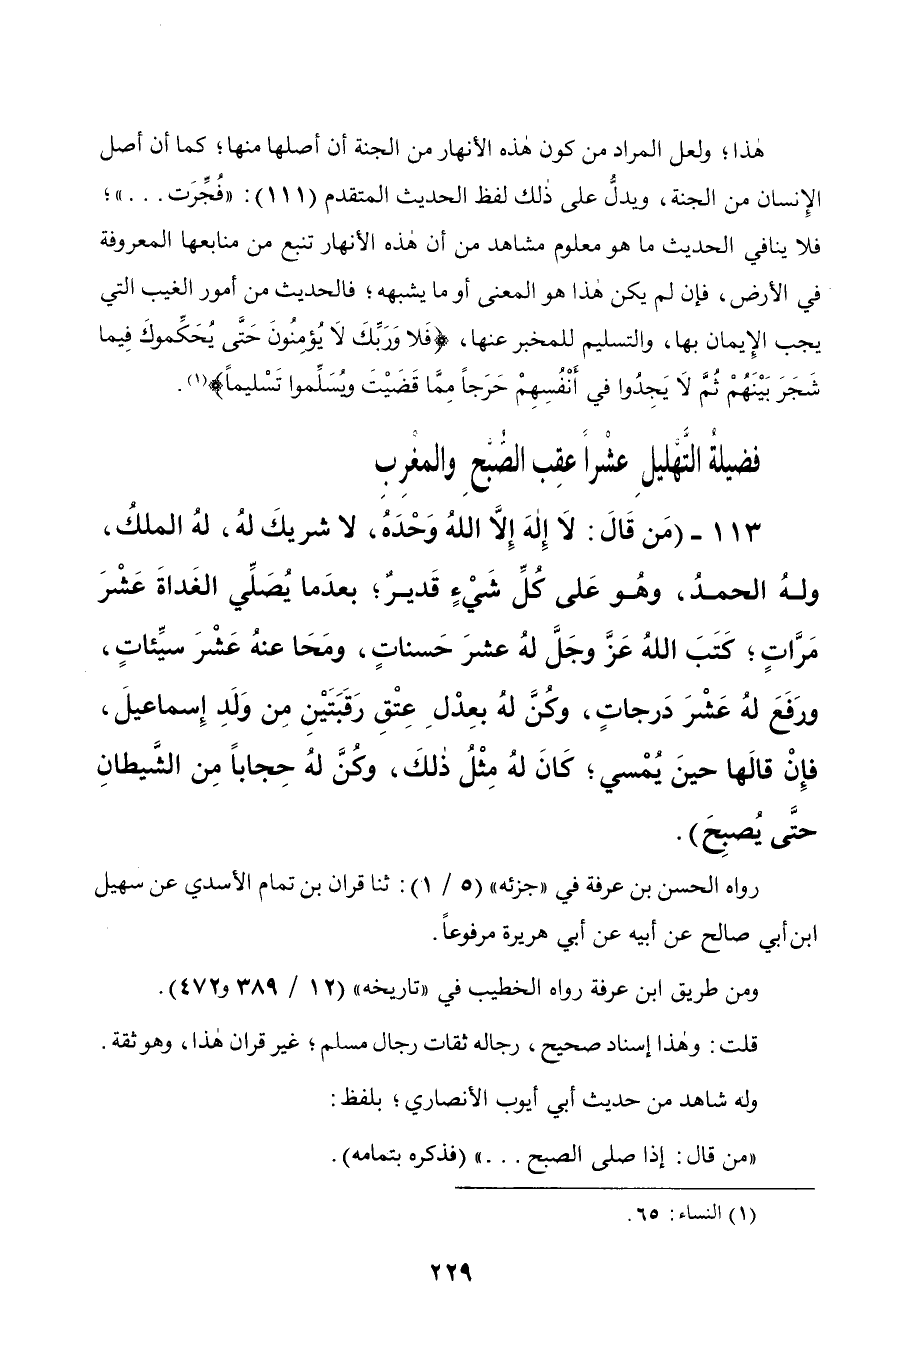 هٰذا؛ ولعل المراد من كون هٰذه الأنهار من الجنة أن أصلها منها؛ كما أن أصل
الإنسان من الجنة، ويدلُّ على ذٰلك لفظ الحديث المتقدم (١١١): «فُجِّرَت . . .»؛
فلا ينافي الحديث ما هو معلوم مشاهد من أن هٰذه الأنهار تنبع من منابعها المعروفة
في الأرض، فإن لم يكن هٰذا هو المعنى أو ما يشبهه؛ فالحديث من أمور الغيب التي
يجب الإيمان بها، والتسليم للمخبر عنها، ﴿فَلا وَرَبِّكَ لَا يُؤمِنُونَ حَتَّى يُحَكِّموكَ فِيما
شَجَرَ بَيْنَهُمْ ثُمَّ لَا يَجِدُوا في أَنْفُسِهِمْ حَرَجاً مِمَّا قَضَيْتَ ويُسَلِّموا تَسْليماً﴾(١).
فضيلةُ التَّهْليلِ عشْراً عقِب الصُّبْحِ والمغْرِبِ
١١٣ - (مَن قَالَ: لَا إِلٰهَ إِلَّا اللهُ وَحْدَهُ، لا شريكَ لهُ، لهُ الملكُ،
ولهُ الحمدُ، وهُو عَلى كُلِّ شَيْءٍ قَديرٌ؛ بعدَما يُصَلِّي الغَداةَ عَشْرَ
مَرَّاتٍ؛ كَتَبَ اللهُ عَزَّ وجَلَّ لهُ عشرَ حَسناتٍ، ومَحَا عنهُ عَشْرَ سيِّئاتٍ،
ورَفَعَ لهُ عَشْرَ دَرجاتٍ، وكُنَّ لهُ بعِدْلِ عِتْقِ رَقَبَتَيْنِ مِن وَلَدِ إِسماعيلَ،
فإِنْ قالَها حينَ يُمْسي؛ كَانَ لهُ مِثْلُ ذٰلكَ، وكُنَّ لهُ حِجاباً مِن الشَّيطانِ
حتَّى يُصبِحَ).
رواه الحسن بن عرفة في «جزئه» (٥ / ١): ثنا قران بن تمام الأسدي عن سهيل
ابن أبي صالح عن أبيه عن أبي هريرة مرفوعاً.
ومن طريق ابن عرفة رواه الخطيب في «تاريخه» (١٢ / ٣٨٩ و٤٧٢).
قلت: وهٰذا إسناد صحيح، رجاله ثقات رجال مسلم؛ غير قران هٰذا، وهو ثقة.
وله شاهد من حديث أبي أيوب الأنصاري؛ بلفظ:
«من قال: إذا صلى الصبح . . .» (فذكره بتمامه).
(١) النساء: ٦٥.
٢٢٩